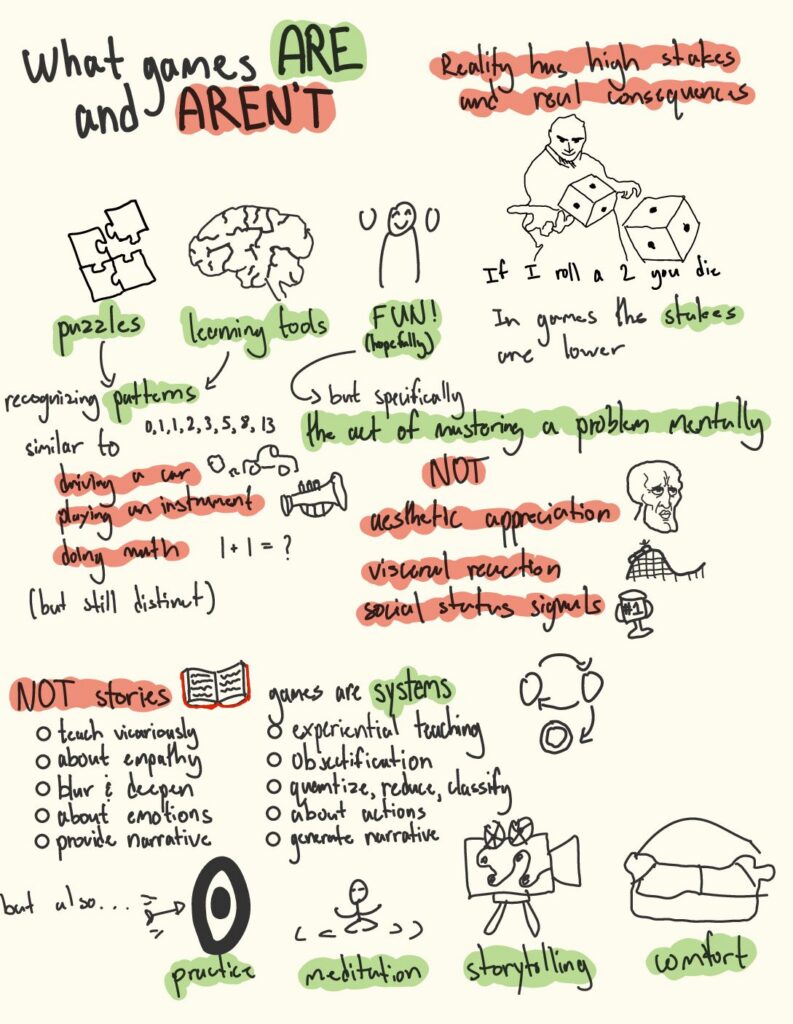 What games ARE
and AREN'T
Reality has high stakes
and real consequences
If I roll a 2 you die
In games the stakes
are lower
puzzles
learning tools
FUN!
(hopefully)
recognizing patterns
0, 1, 1, 2, 3, 5, 8, 13
similar to
driving a car
playing an instrument
doing math
1 + 1 = ?
(but still distinct)
but specifically
the act of mastering a problem mentally
NOT
aesthetic appreciation
visceral reaction
social status signals
#1
NOT stories
teach vicariously
about empathy
blur & deepen
about emotions
provide narrative
games are systems
experiential teaching
objectification
quantize, reduce, classify
about actions
generate narrative
but also...
practice
meditation
storytelling
comfort